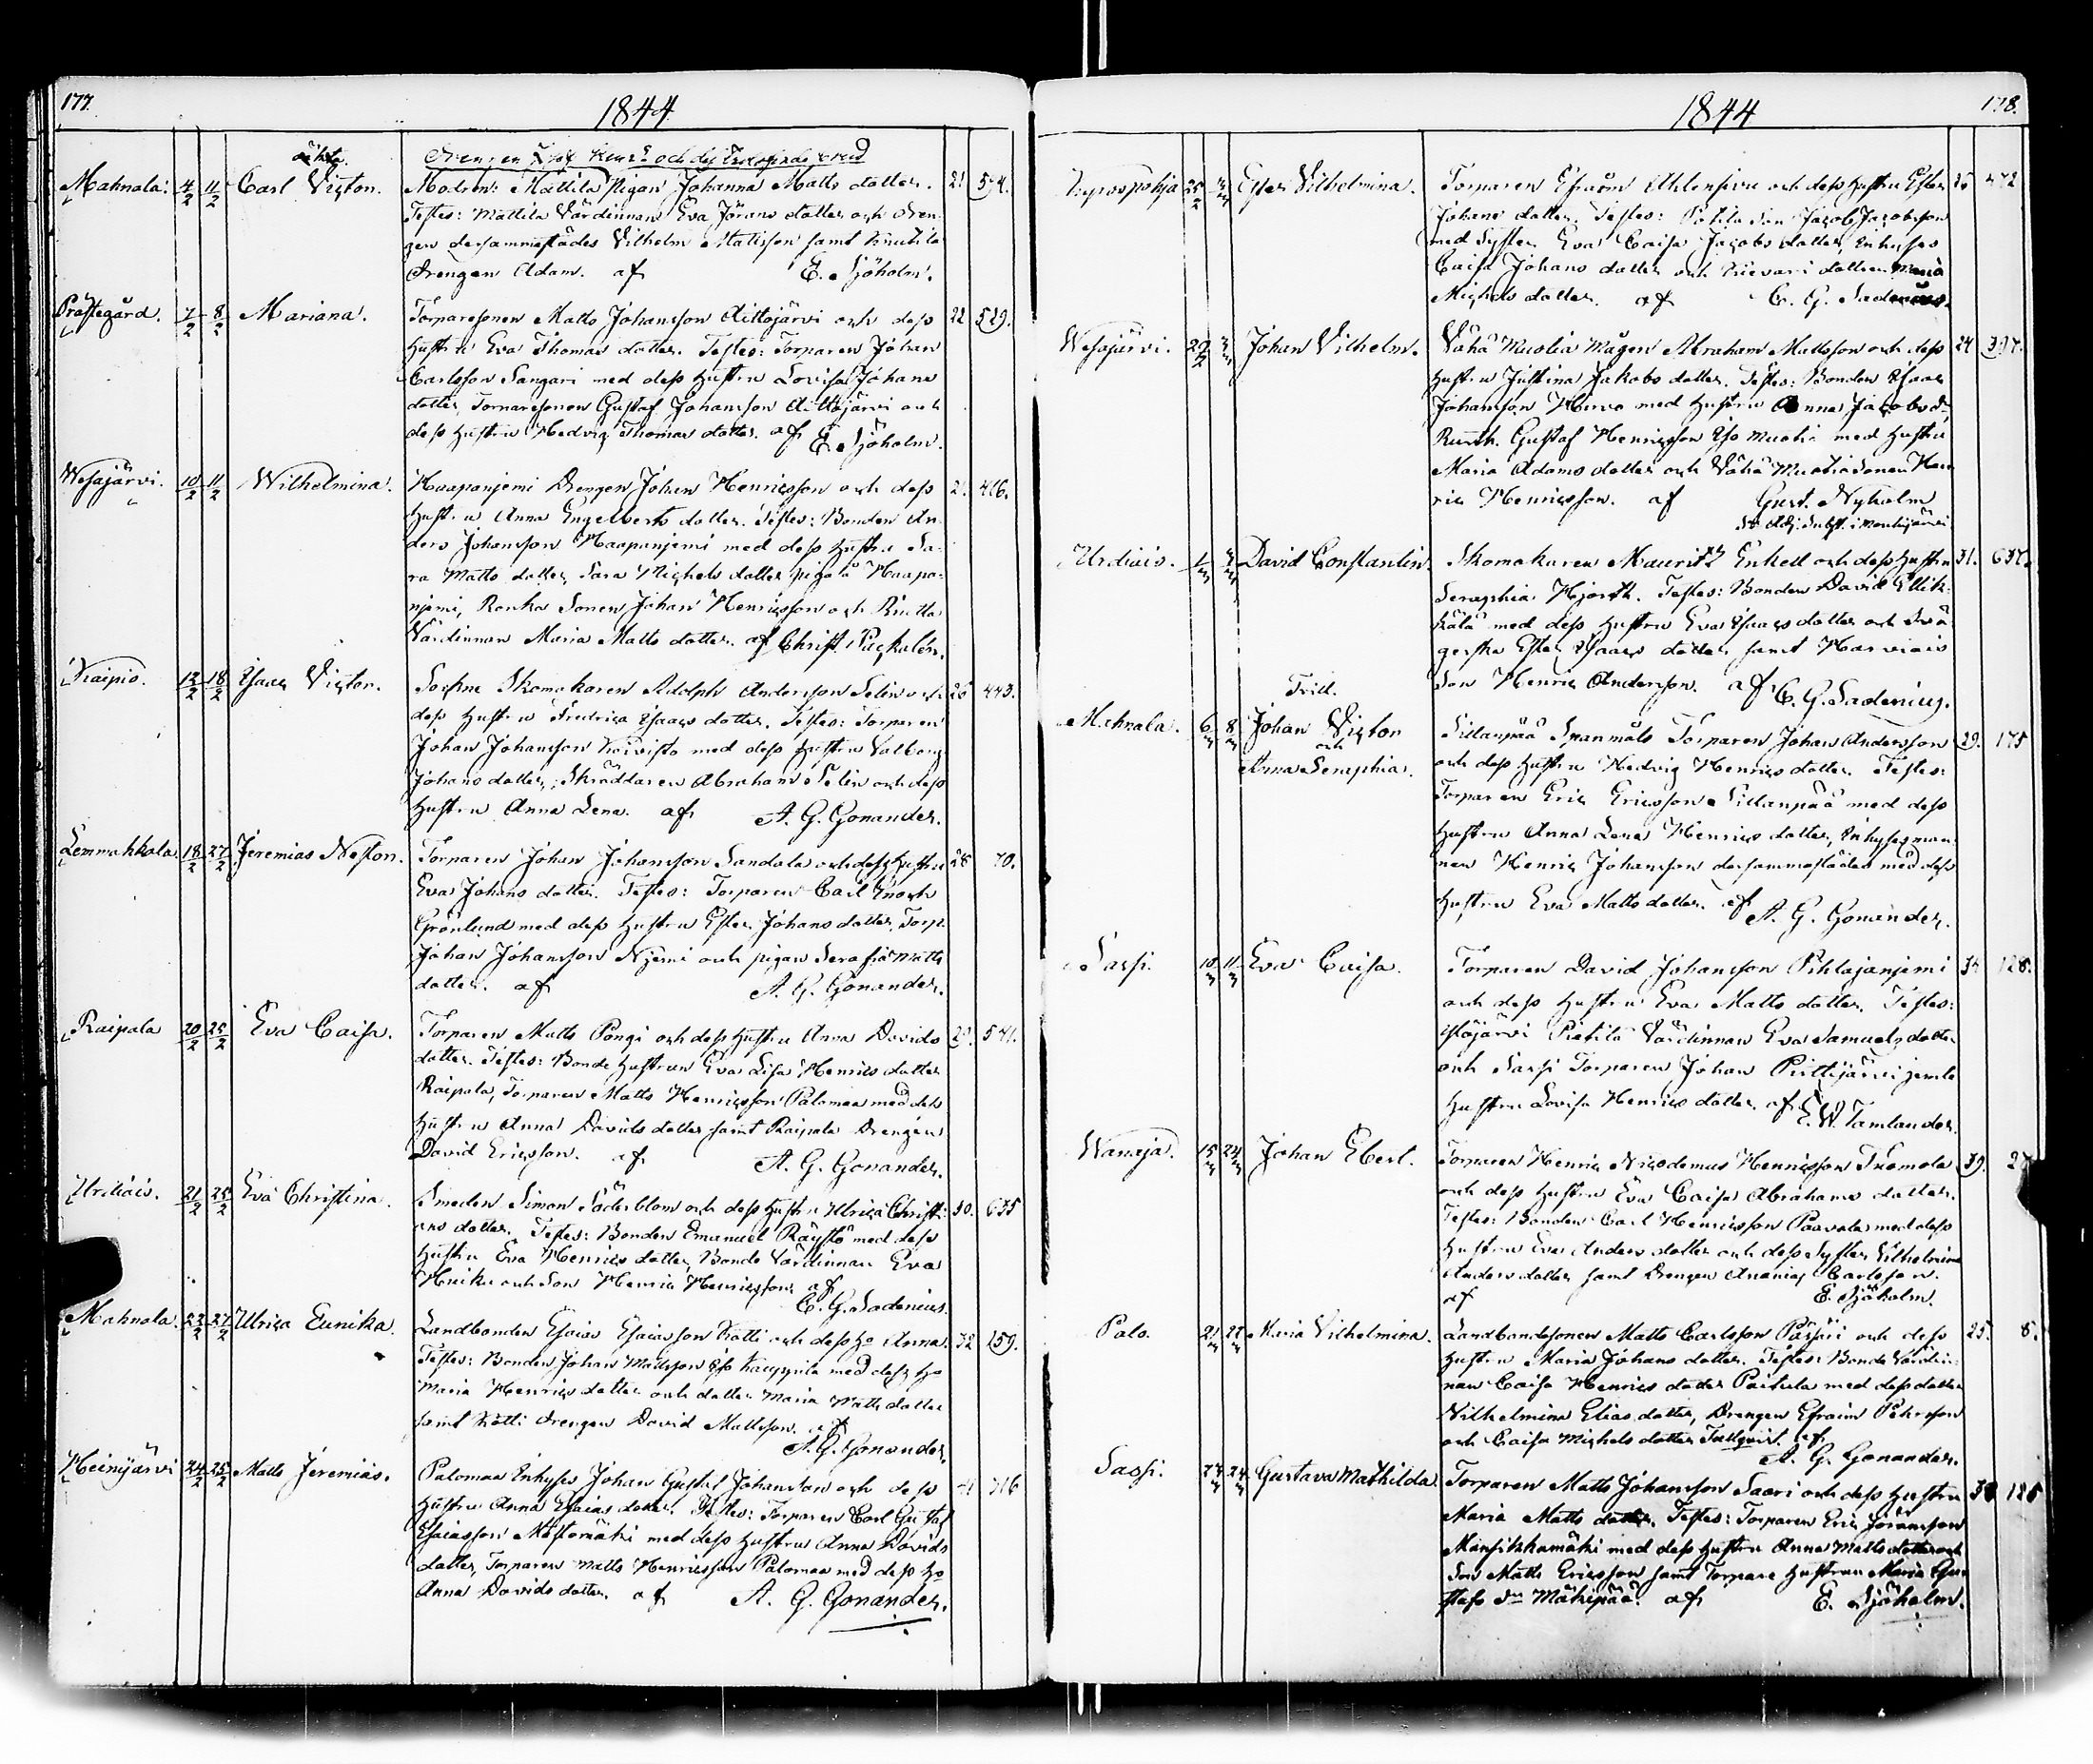 177.
1844
Mahnala. 4/2 11/2 Carl Victor. ächta.
Drengen och dess trolofvade
Modren: Mattila Pigan Johanna Matts dotter. 21 574.
Testes: Mattila Värdinnan Eva Jörans dotter och dren-
gen dersammastädes Vilhelm Mattsson samt Knutila
Drengen Adam. af E. Sjöholm.
Prästegård. 7/2 8/2 Mariana. Torparesonen Matts Johansson Aittojärvi och dess 22 529.
hustru Eva Thomas dotter. Testes: Torparen Johan
Carlsson Sangari med dess hustru Lovisa Johans
dotter, Torparesonen Gustaf Johansson Aittojärvi och
dess hustru Hedvig Thomas dotter. af E. Sjöholm.
Wesajärvi. 10/2 11/2 Wilhelmina. Haapanjemi Drengen Johan Henricsson och dess 416.
hustru Anna Engelberts dotter. Testes: Bonden An-
ders Johansson Haapanjemi med dess hustru Sa-
ra Matts dotter, Sara Michels dotter piga å Haapa-
njemi, Ronka Sonen Johan Henricsson och
Värdinnan Maria Matts dotter. af Christ. Puckalén.
Kaipio. 12/2 18/2 Isaac Victor. Sockne Skomakaren Adolph Andersson Selin och 26 443.
dess hustru Fredrica Isaacs dotter. Testes: Torparen
Johan Johansson Koivisto med dess hustru Valborg
Johans dotter; Skräddaren Abraham Selin och dess
hustru Anna Lena. af A. G. Gonander.
Lemmakkala. 18/2 27/2 Jeremias Nestor. Torparen Johan Johansson Sandala och dess hustru 28 70.
Eva Johans dotter. Testes: Torparen Carl Enoch
Grönlund med dess hustru Ester Johans dotter, Torp.
Johan Johansson Njemi och pigan Serafia Matts
dotter. af A. G. Gonander.
Raipala 20/2 25/2 Eva Caisa. Torparen Matts Pongi och dess hustru Anna Davids 29. 541.
dotter. Testes: Bonde hustrun Eva Lisa Henrics dotter
Raipala, Torparen Matts Henricsson Palomaa med dess
hustru Anna Davids dotter samt Raipala Drengen
David Ericsson. af A. G. Gonander.
Urdiais. 21/2 25/2 Eva Christina. Smeden Simon Söderblom och dess hustru Ulrica Christi- 30. 635
ans dotter. Testes: Bonden Emanuel Räystö med dess
hustru Eva Henrics dotter, Bonde Värdinnan Eva
Heiku och Son Henric Henricsson. af
C. G. Sadenius.
Mahnala. 23/2 27/2 Ulrica Eunika. Landbonden Esaias Esaiasson Kätti och dess ho Anna. 32 159.
Testes: Bonden Johan Mattsson Iso Kauppila med dess ho
Maria Henrics dotter och dotter Maria Matts dotter
samt Kätti drengen David Mattsson. af
A. G. Gonander.
Heinijärvi 24/2 25/2 Matts Jeremias. Palomaa Inhyses Johan Gustaf Johansson och dess 316
hustru Anna Esaias dotter. Testes: Torparen Carl Gustaf
Esaiasson Mustamäki med dess hustru Anna Davids
dotter, Torparen Matts Henricsson Palomaa med dess ho
Anna Davids dotter. af A. G. Gonander.
178.
1844
Kyröspohja 25/2 Ester Vilhelmina. Torparen Efraim Ahlensivu och dess hustru Ester 472
Johans dotter. Testes: Pietilä Son Jacob Jacobsson
med Syster Eva Caisa Jacobs dotter, Inhyses
Caisa Johans dotter och dottren Maria
Michels dotter. af C. G. Sadenius.
Wesajärvi. 29/2 Johan Vilhelm. Vähä Muotia Mågen Abraham Mattsson och dess 24 397.
hustru Justina Jakobs dotter. Testes: Bonden Isaac
Johansson Hirvo med hustru Anna Jacobs dr,
Rusth. Gustaf Henricsson Iso Muotia med hustru
Maria Adams dotter och Vähä Muotia Sonen Hen-
ric Henricsson. af Gust. Nyholm
v. Adj. Subst. i Mouhijärvi
Urdiais. 1/3 David Constantin. Skomakaren Mauritz Enkell och dess hustru 31. 637.
Seraphia Hjorth. Testes: Bonden David Ellik-
kälä med dess hustru Eva Isaacs dotter och Svä-
gerska Ester Isaacs dotter samt Harviais
Son Henric Andersson. af C. G. Sadenius.
Mahnala. 6/3 8/3 Tvill. Johan Victor
och
Anna Seraphia. Sillanpää Spanmåls Torparen Johan Andersson 29. 175
och dess hustru Hedvig Henrics dotter. Testes:
Torparen Eric Ericsson Sillanpää med dess
hustru Anna Lena Henrics dotter, Inhyses man-
nen Henric Johansson dersammastädes med dess
hustru Eva Matts dotter. af A. G. Gonander.
Sassi. 10/3 11/3 Eva Caisa. Torparen David Johansson Pihlajanjemi 34 128.
och dess hustru Eva Matts dotter. Testes:
Ylöjärvi Pietilä Värdinnan Eva Samuels dotter
och Sassi Torparen Johan Pittkjärvi jemte
hustru Lovisa Henrics dotter. af E. W. Tamlander.
Wanaja. 15/3 24/3 Johan Ebert. Torparen Henric Nicodemus Henricsson Tuomola 39.
och dess hustru Eva Caisa Abrahams dotter.
Testes: Bonden Carl Henricsson Paavola med dess
hustru Eva Anders dotter och dess Syster Vilhelmina
Anders dotter samt Drengen Ananias Carlsson.
af E. Sjöholm.
Palo. 21/3 22/3 Maria Vilhelmina. Landbondesonen Matts Carlsson Pärssäri och dess 25. 8.
hustru Maria Johans dotter. Testes: Bonde Värdin-
nan Caisa Henrics dotter Paitula med dess dotter
Vilhelmina Elias dotter, Drengen Efraim Pehrsson
och Caisa Michels dotter Tallqvist. af
A. G. Gonander.
Sassi. 23/3 24/3 Gustava Mathilda. Torparen Matts Johansson Saari och dess hustru
Maria Matts dotter. Testes: Torparen Eric Jöransson
Mansikkamäki med dess hustru Anna Matts dotter och
Son Matts Ericsson samt Torpare hustrun Maria Gu-
stafs dr Mäkipää. af E. Sjöholm.